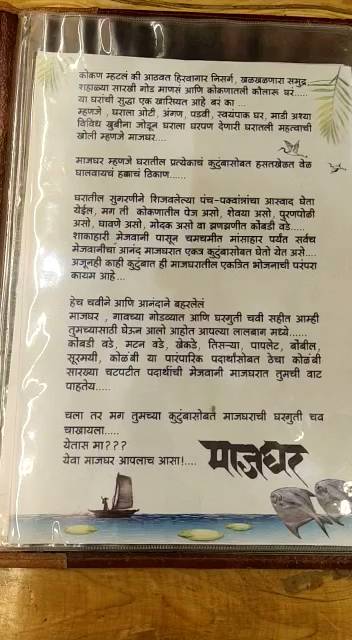 कोकण म्हटलं की आठवत हिरवागार निसर्ग, खळखळणारा समुद्र,
शहाळ्या सारखी गोड माणसं आणि कोकणातली कौलारू घरं.....
या घरांची सुद्धा एक खासियत आहे बरं का ...
म्हणजे , घराला ओटी, अंगण, पडवी, स्वयंपाक घर, माडी अश्या
विविध खुबीना जोडून घराला घरपण देणारी घरातली महत्वाची
खोली म्हणजे माजघर....
माजघर म्हणजे घरातील प्रत्येकाचं कुटुंबासोबत हसतखेळत वेळ
घालवायचं हक्काचं ठिकाण......
घरातील सुगरणीने शिजवलेल्या पंच-पक्वांनांचा आस्वाद घेता
येईल, मग ती कोकणातील पेज असो, शेवया असो, पुरणपोळी
असो, घावणे असो, मोदक असो वा झणझणीत कोंबडी वडे.....
शाकाहारी मेजवानी पासून चमचमीत मांसाहार पर्यंत सर्वच
मेजवानीचा आनंद माजघरात एकत्र कुटुंबासोबत घेतो येत असे....
अजूनही काही कुटुंबात ही माजघरातील एकत्रित भोजनाची परंपरा
कायम आहे...
हेच चवीने आणि आनंदाने बहरलेलं
माजघर , गावच्या गोडव्यात आणि घरगुती चवी सहीत आम्ही
तुमच्यासाठी घेऊन आलो आहोत आपल्या लालबाग मध्ये.....
कोंबडी वडे, मटन वडे, खेकडे, तिसऱ्या, पापलेट, बोंबील,
सूरमयी, कोळंबी या पारंपारिक पदार्थांसोबत ठेचा कोळंबी
सारख्या चटपटीत पदार्थांची मेजवानी माजघरात तुमची वाट
पाहतेय.....
चला तर मग तुमच्या कुटुंबासोबत माजघराची घरगुती चव
चाखायला.....
येतास मा???
येवा माजघर आपलाच आसा!....
माजघर